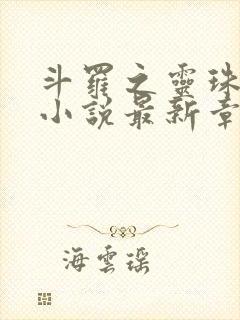 斗羅之靈珠
小說最新章
海雲瑶